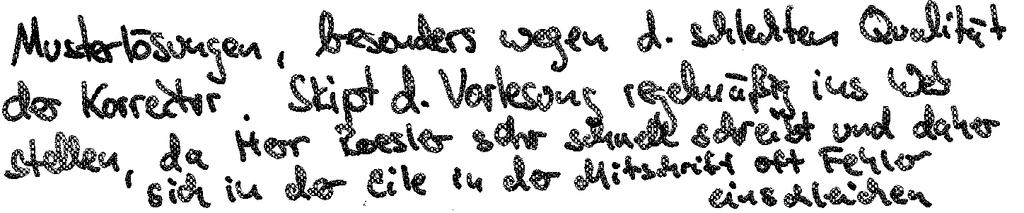 Musterlösungen, besonders wegen d. schlechten Qualität
der Korrektur. Skipt d. Vorlesung regelmäßig ins Web
stellen, da Herr Roesler sehr schnell schreibt und daher
sich in der Eile in der Mitschrift oft Fehler
einschleichen